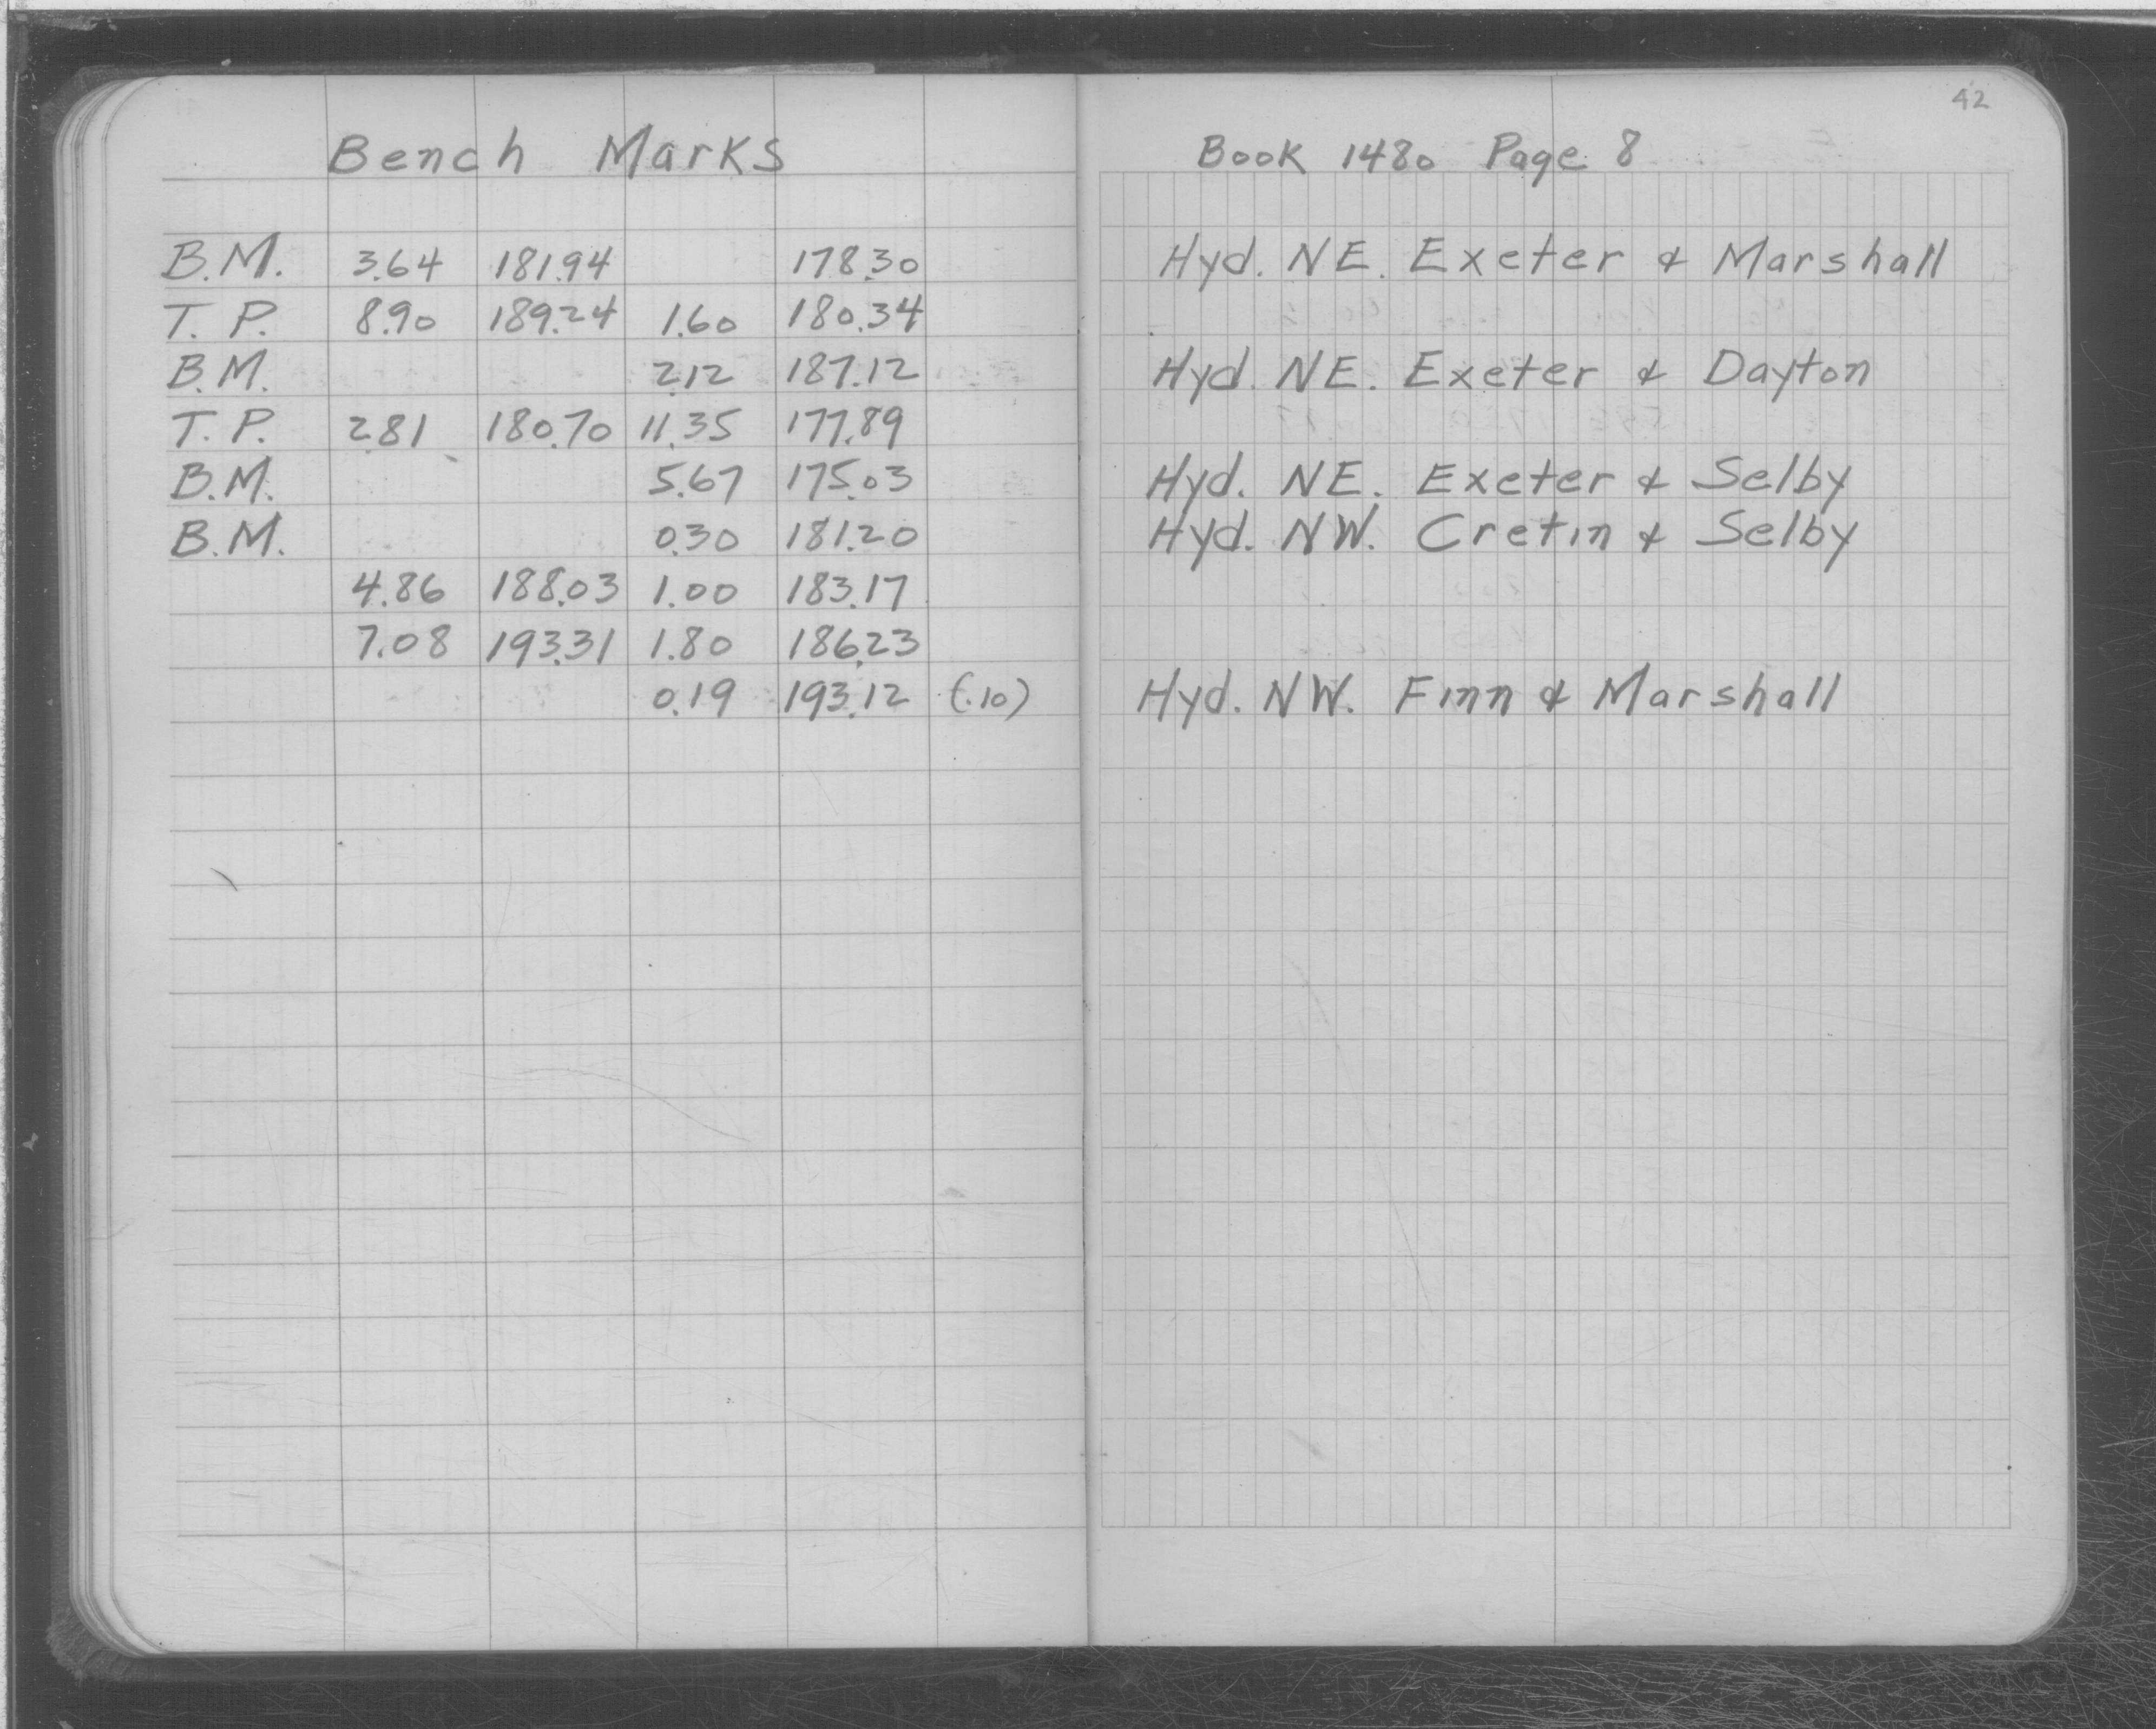 42
Bench Marks
Book 1480 Page 8
B.M. 3.64 181.94 178.30 Hyd. NE. Exeter & Marshall
T. P. 8.90 189.24 1.60 180.34
B.M. 2.12 187.12 Hyd. NE. Exeter & Dayton
T. P. 2.81 180.70 11.35 177.89
B.M. 5.67 175.03 Hyd. NE. Exeter & Selby
B.M. 0.30 181.20 Hyd. NW. Cretin & Selby
4.86 188.03 1.00 183.17
7.08 193.31 1.80 186.23
0.19 193.12 (.10) Hyd. NW. Finn & Marshall